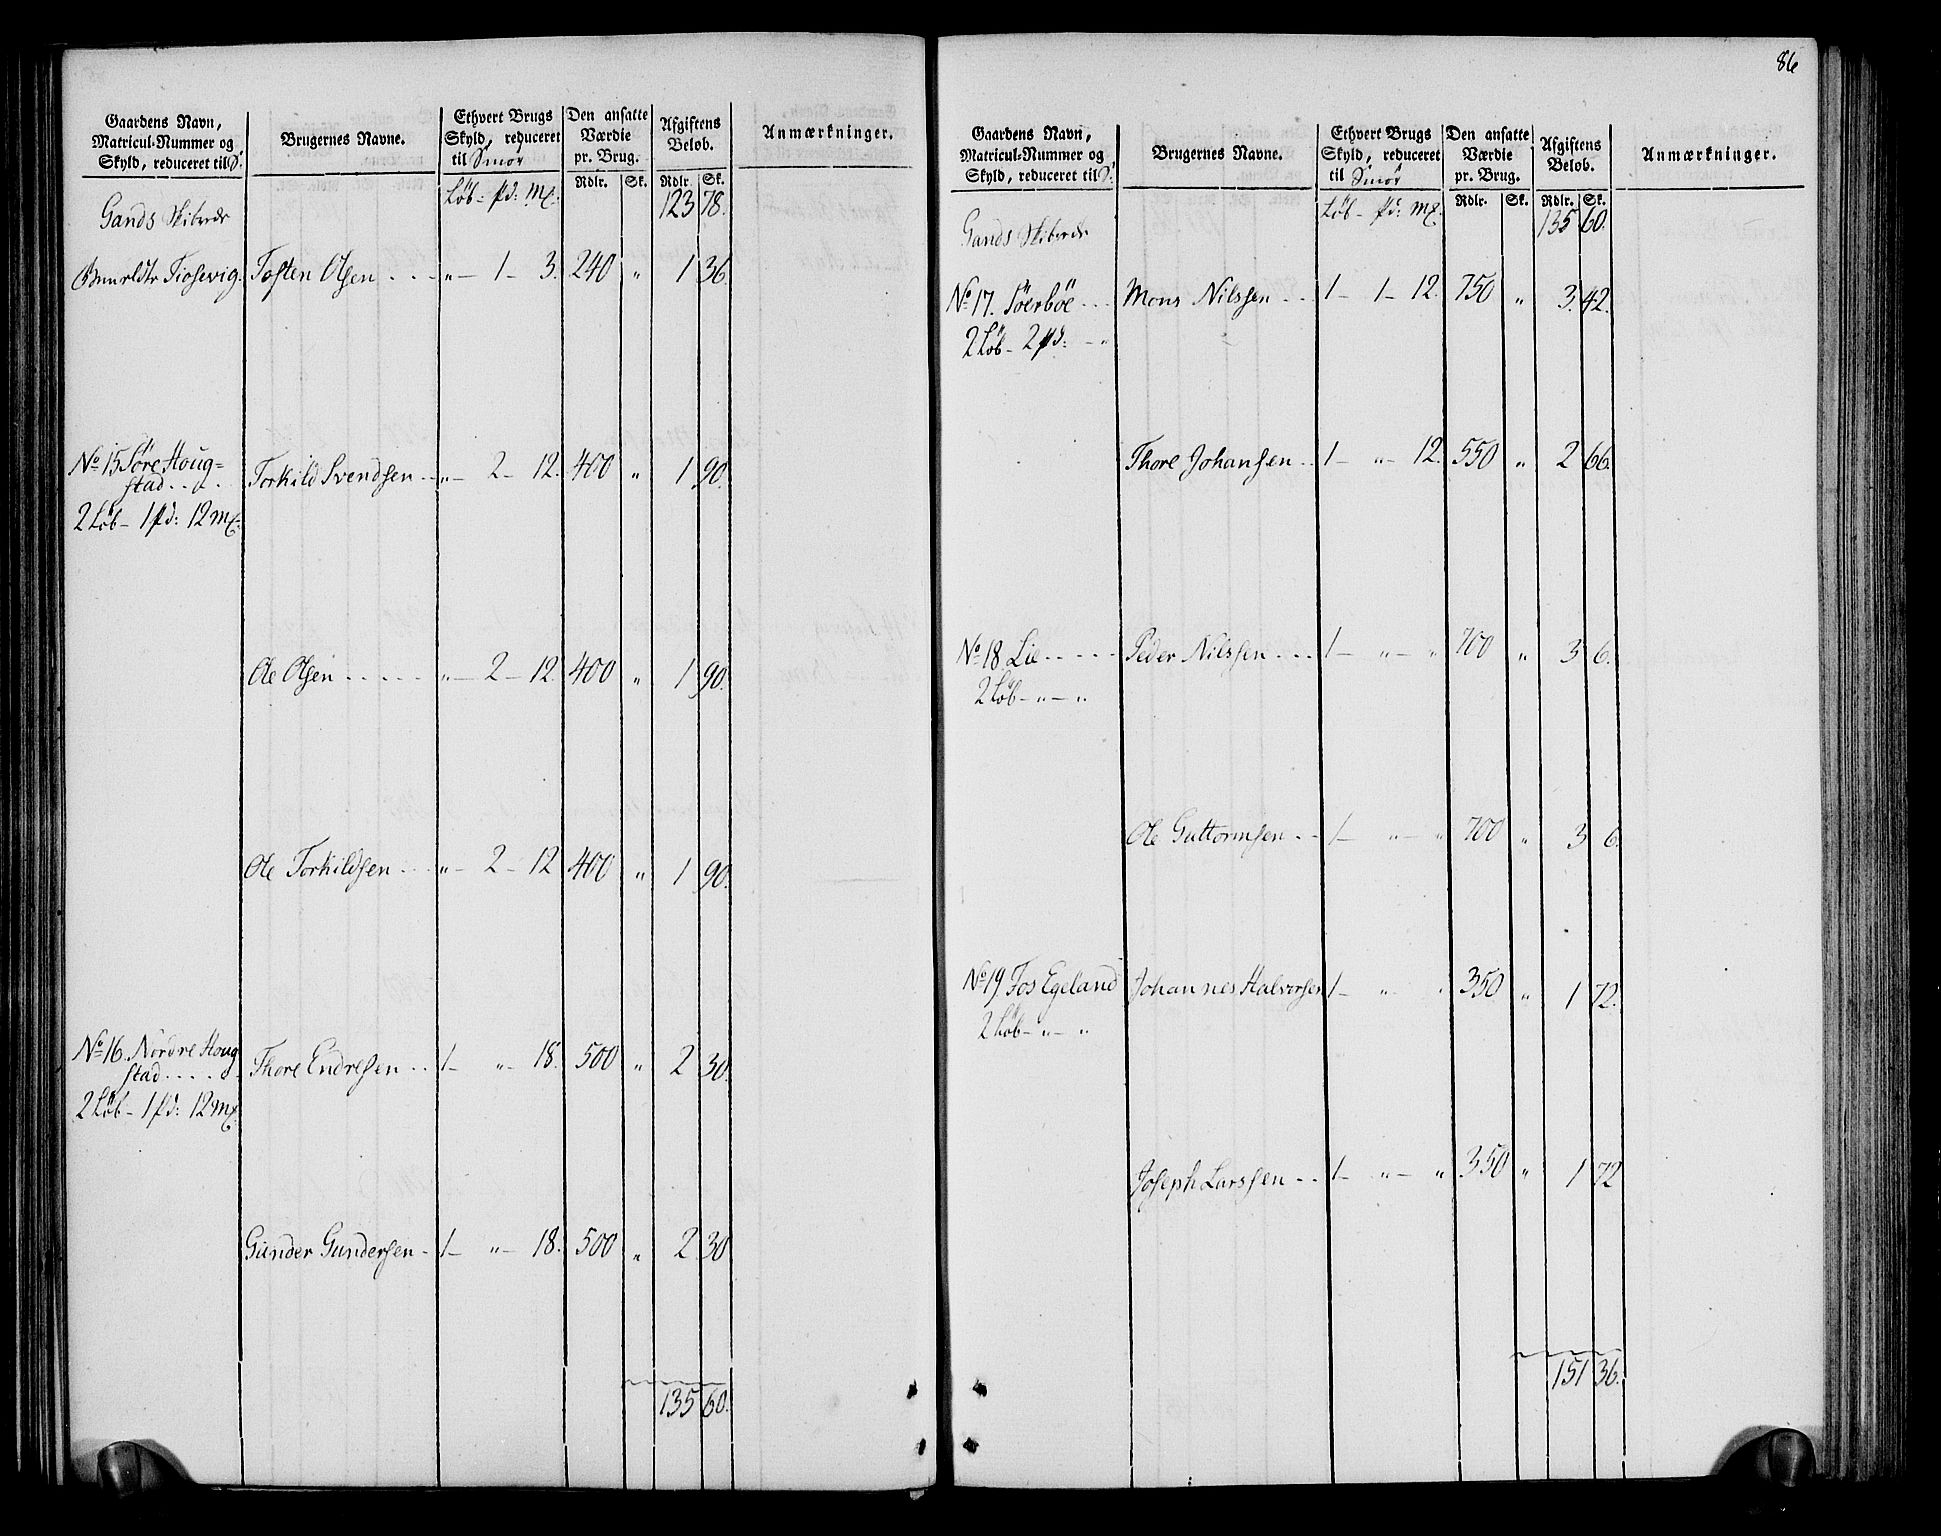 86
Gaardens Navn, Matricul-Nummer og Skyld, reduceret til S. | Brugernes Navne. | Ethvert Brugs Skyld, reduceret til Smör | Den ansatte Værdie pr. Brug. | Afgiftens Beløb. | Anmærkninger.
Löb - pd: mƺ. | Rdlr. | Sk. | Rdlr. | Sk.
Gands Skibrede 123 78.
Tiosevig. Tosten Olsen " - 1 - 3. 240 " 1 36.
No 15 Söre Houg=
stad Torkild Svendsen " - 2 - 12. 400 " 1 90.
2 Löb - 1 pd: 12 mƺ.
Ole Olsen " - 2 - 12. 400 " 1 90.
Ole Torkildsen " - 2 - 12 400 " 1 90.
No 16. Nordre Houg
stad Thore Endresen 1 - " - 18. 500 " 2 30.
2 Löb - 1 pd: 12 mƺ.
Gunder Gundersen 1 - " - 18. 500 " 2 30
135 60.
Gaardens Navn, Matricul-Nummer og Skyld, reduceret til S. | Brugernes Navne. | Ethvert Brugs Skyld, reduceret til Smör | Den ansatte Værdie pr. Brug. | Afgiftens Beløb. | Anmærkninger.
Löb - pd: mƺ. | Rdlr. | Sk. | Rdlr. | Sk.
Gands Skibrede 135 60.
No 17. Söerböe Mons Nilssen 1 - 1 - 12. 750 " 3. 42.
2 Löb - 2 pd: - "
Thore Johansen 1 - " - 12. 550 " 2 66.
No 18. Lie Peder Nilssen 1 - " - " 700 " 3 6.
2 Löb - " - "
Ole Guttormsen 1 - " - " 700 " 3 6.
No 19. Fos Egeland Johannes Halvorsen 1 - " " 350 " 1 72.
2 Löb - " - "
Joseph Larssen 1 - " - " 350 " 1 72
151 36.